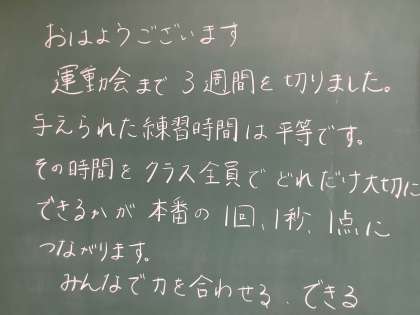 おはようございます
運動会まで3週間を切りました。
与えられた練習時間は平等です。
その時間をクラス全員でどれだけ大切に
できるかが本番の1回、1秒、1点に
つながります。
みんなで力を合わせる、できる